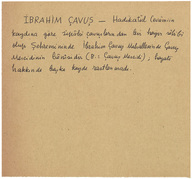 İBRAHİM ÇAVUŞ — Hadikatül Cevâmiin
kaydına göre topçu çavuşlarından bir hayır sâhibi
olup Şehremininde İbrahim Çavuş Mahallesinde Çavuş
Mescidinin bânisidir (B.: Çavuş Mescidi), hayatı
hakkında başka kayde rastlanmadı.